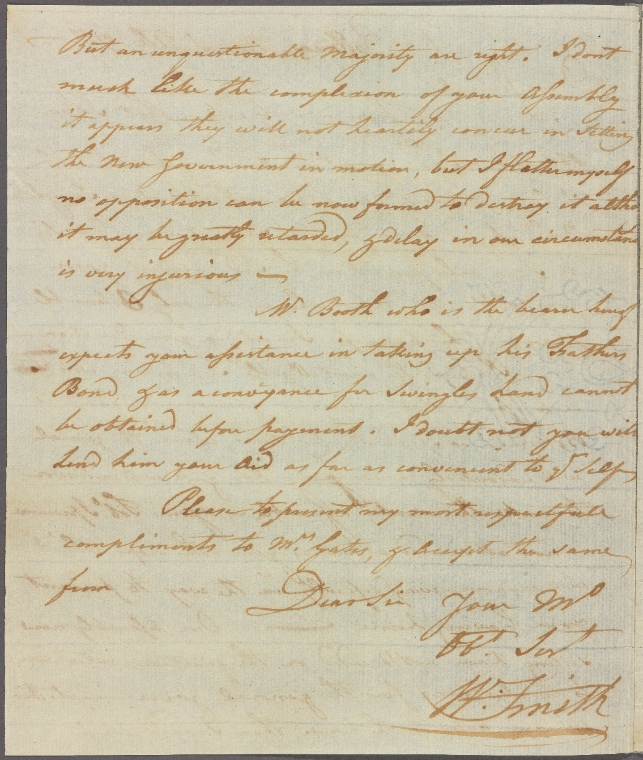 But an unquestionable Majority are right. I dont
much like the complexion of your Assembly
it appears they will not heartily concur in setting
the new Government in motion, but I flatter myself
no opposition can be now formed to destroy it altho
it may be greatly retarded, & delay in our circumstan
is very injurious —
Mr. Booth who is the bearer hereof
expects your assistance in taking up his Fathers
Bond, & as a conveyance for Swingles Land cannot
be obtained before payment. I doubt not you will
lend him your aid as far as convenient to yr self
Please to present my most respectfull
compliments to Mrs Gates, & accept the same
from Dear Sir Your Mo
Obt Servt
Wm Smith